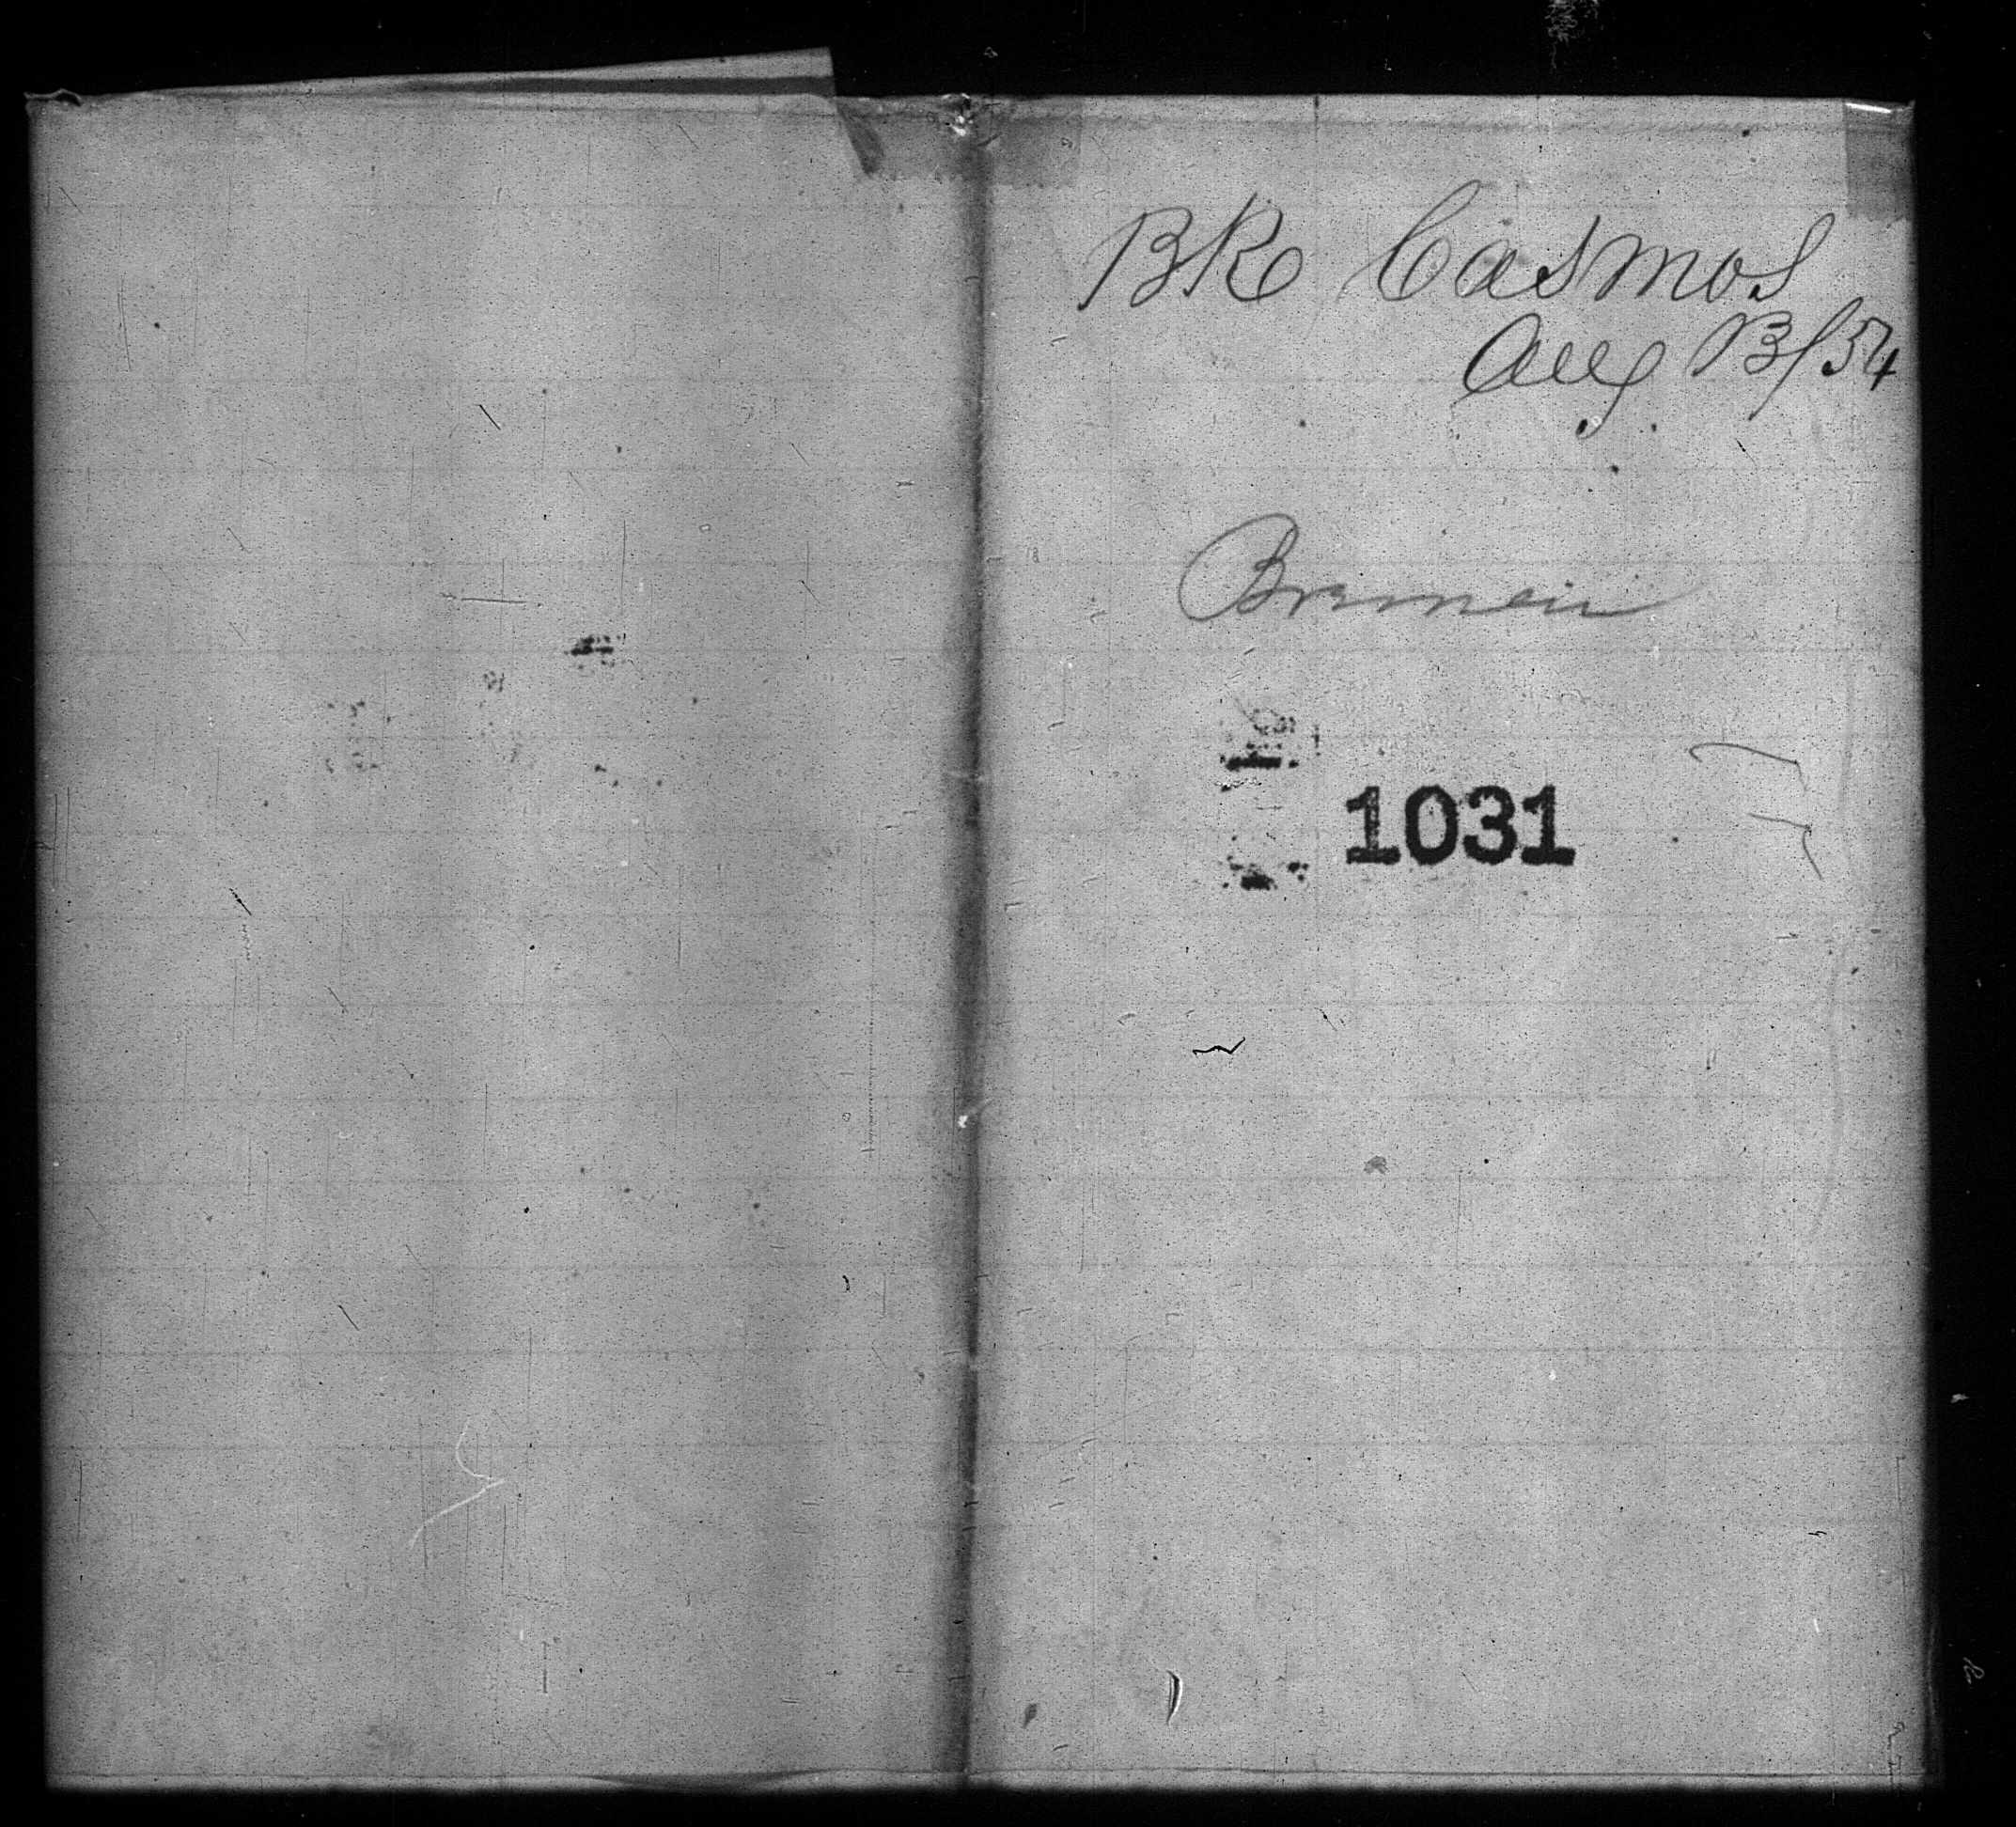 BKe Casmos
Aug B/54
Bremein
1031